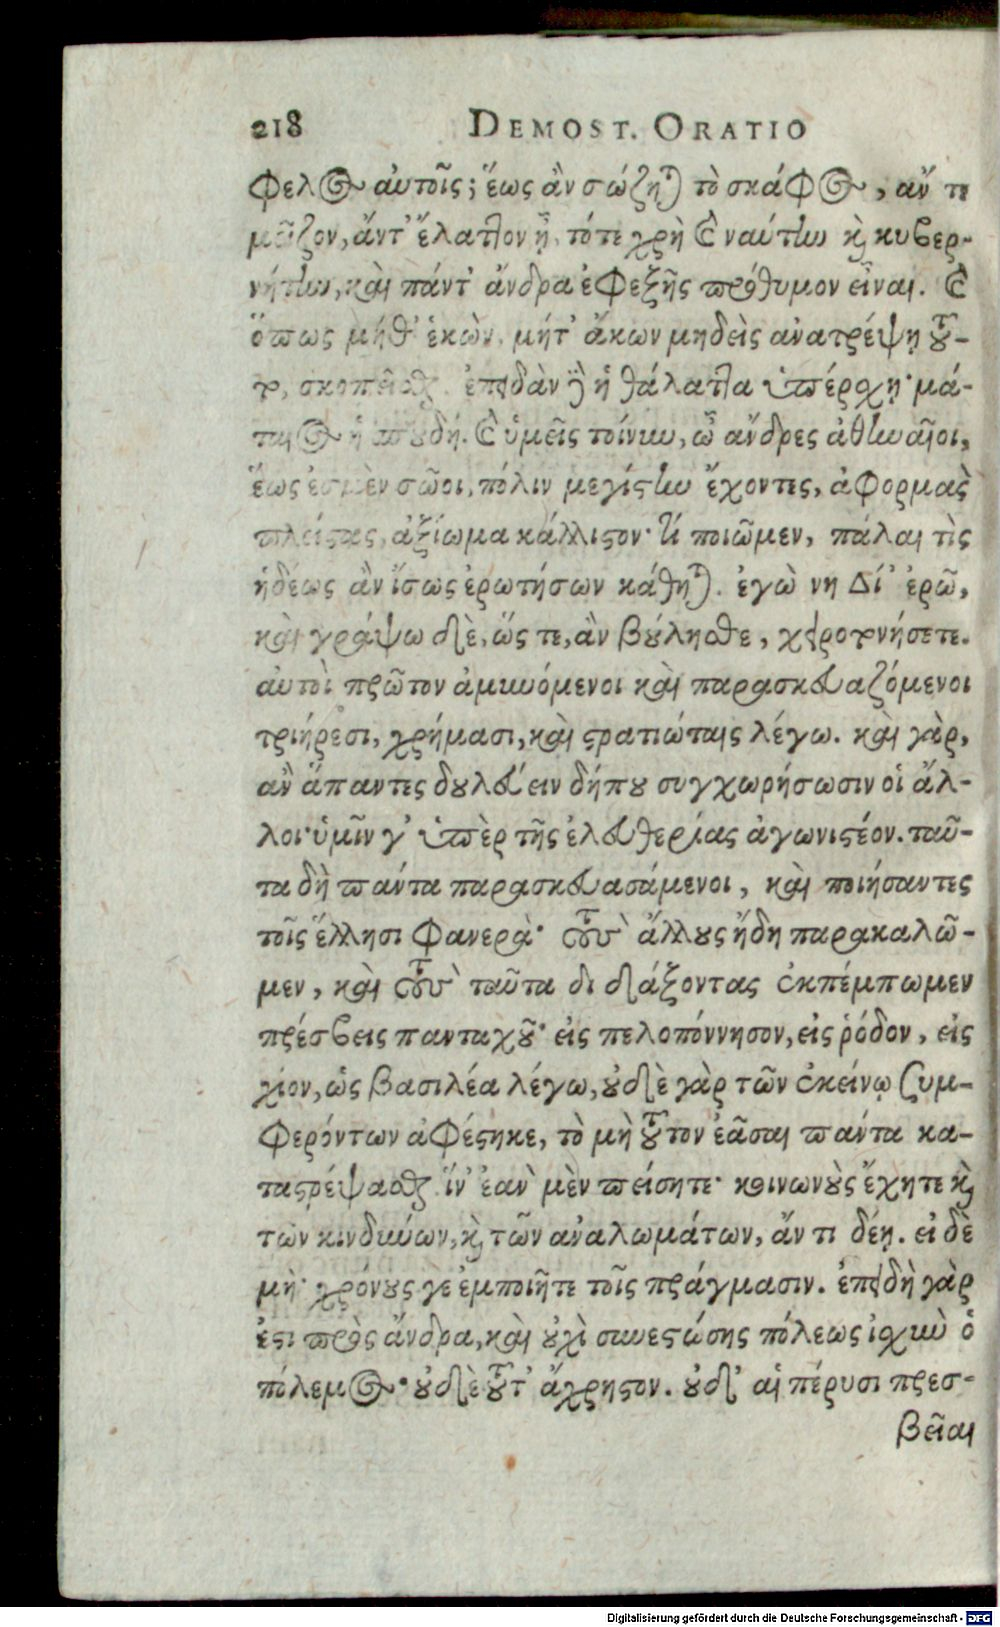 218 DEMOST. ORATIO
φελος αὐτοῖς; ἕως ἂν σώζηται τὸ σκάφος, ἄν τι
μεῖζον, ἄντ' ἔλαττον ᾖ, τότε χρὴ καὶ ναύτην καὶ κυβερ-
νήτην, καὶ πάντ' ἄνδρα ἐφεξῆς πρόθυμον εἶναι. καὶ
ὅπως μήθ' ἑκὼν, μήτ' ἄκων μηδεὶς ἀνατρέψῃ τοῦ-
το, σκοπεῖσθαι. ἐπειδὰν δὲ ἡ θάλαττα ὑπέρχῃ· μά-
ταιος ἡ σπουδή. καὶ ὑμεῖς τοίνυν, ὦ ἄνδρες ἀθηναῖοι,
ἕως ἐσμὲν σῶοι, πόλιν μεγίστην ἔχοντες, ἀφορμὰς
πλείστας, ἀξίωμα κάλλιστον· τί ποιῶμεν, πάλαι τὶς
ἡδέως ἂν ἴσως ἐρωτήσων κάθηται. ἐγὼ νη Δί' ἐρῶ,
καὶ γράψω δὲ, ὥς τε, ἂν βούλησθε, χειροτονήσετε.
αὐτοὶ πρῶτον ἀμυνόμενοι καὶ παρασκευαζόμενοι
τριήρεσι, χρήμασι, καὶ στρατιώταις λέγω. καὶ γὰρ,
ἂν ἅπαντες δουλεύειν δήπου συγχωρήσωσιν οἱ ἄλ-
λοι· ὑμῖν γ' ὑπὲρ τῆς ἐλευθερίας ἀγωνιστέον. ταῦ-
τα δὴ πάντα παρασκευασάμενοι, καὶ ποιήσαντες
τοῖς ἕλλησι φανερά· τοὺς ἄλλους ἤδη παρακαλῶ-
μεν, καὶ τοὺς ταῦτα δι διδάξοντας ἐκπέμπωμεν
πρέσβεις πανταχοῦ· εἰς πελοπόννησον, εἰς ῥόδον, εἰς
χίον, ὡς βασιλέα λέγω, οὐδὲ γὰρ τῶν ἐκείνῳ συμ-
φερόντων ἀφέστηκε, τὸ μὴ τοῦτον ἐᾶσαι πάντα κα-
ταστρέψασθαι. ἵν' ἐὰν μὲν πείσητε· κοινωνοὺς ἔχητε καὶ
τῶν κινδύνων, καὶ τῶν ἀναλωμάτων, ἄν τι δέῃ. εἰ δὲ
μὴ· χρόνους γε ἐμποιῆτε τοῖς πράγμασιν. ἐπειδὴ γὰρ
ἐστι πρὸς ἄνδρα, καὶ οὐχὶ συνεστώσης πόλεως ἰσχὺν ὁ
πόλεμος· οὐδὲ τοῦτ' ἄχρηστον. οὐδ' αἱ πέρυσι πρεσ-
βεῖαι
Digitalisierung gefördert durch die Deutsche Forschungsgemeinschaft - DFG